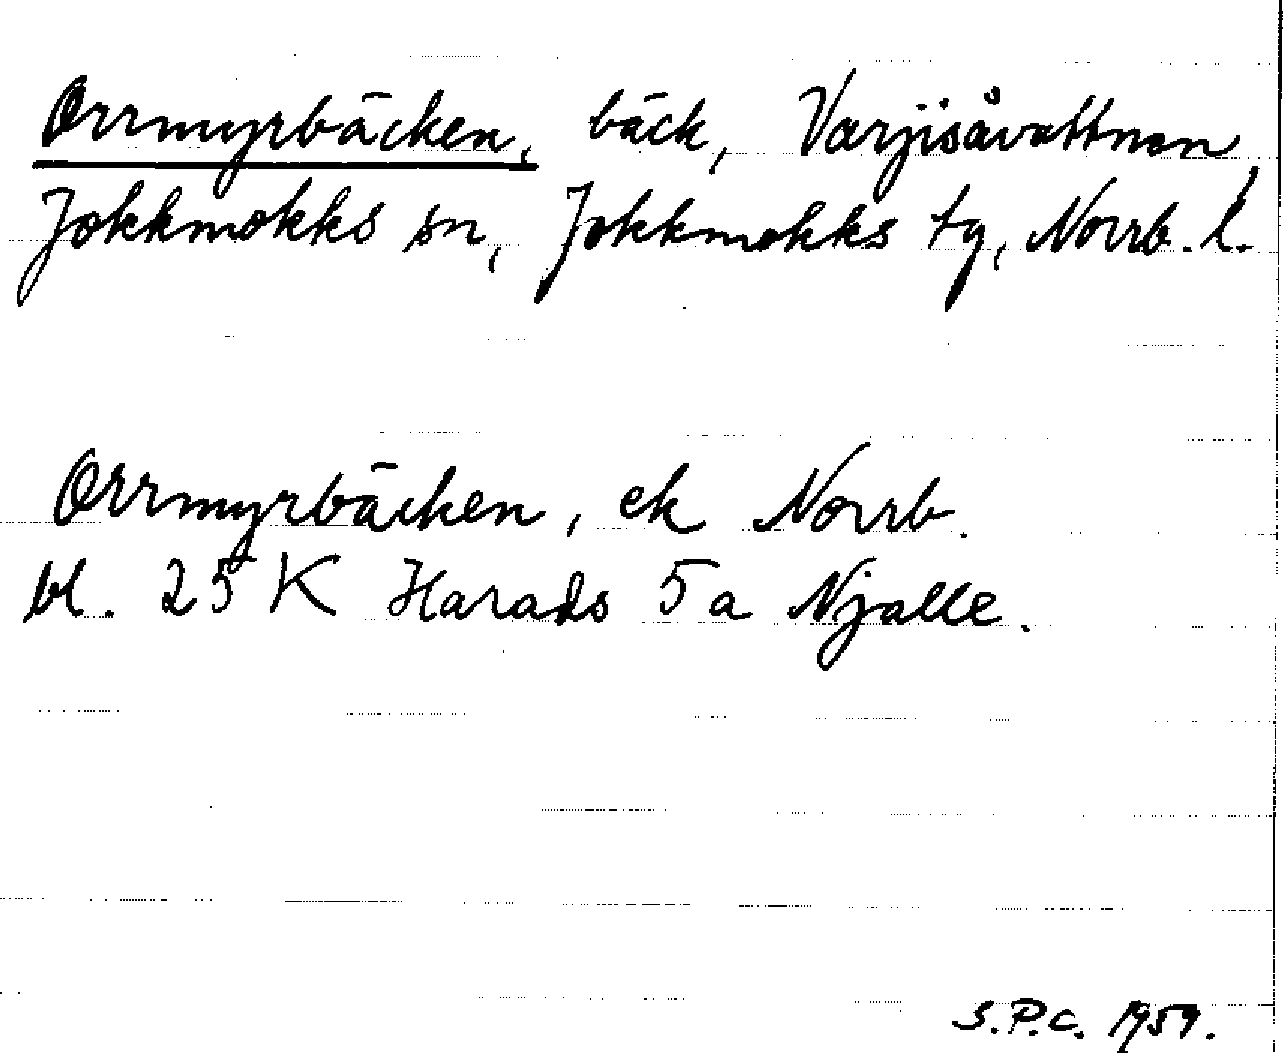 Orrmyrbäcken, bäck, Varjisåvattnen,
Jokkmokks sn, Jokkmokks tg, Norrb. l.
Orrmyrbäcken, ek Norrb.
bl. 25 K Harads 5a Njalle.
S.P.C. 1959.